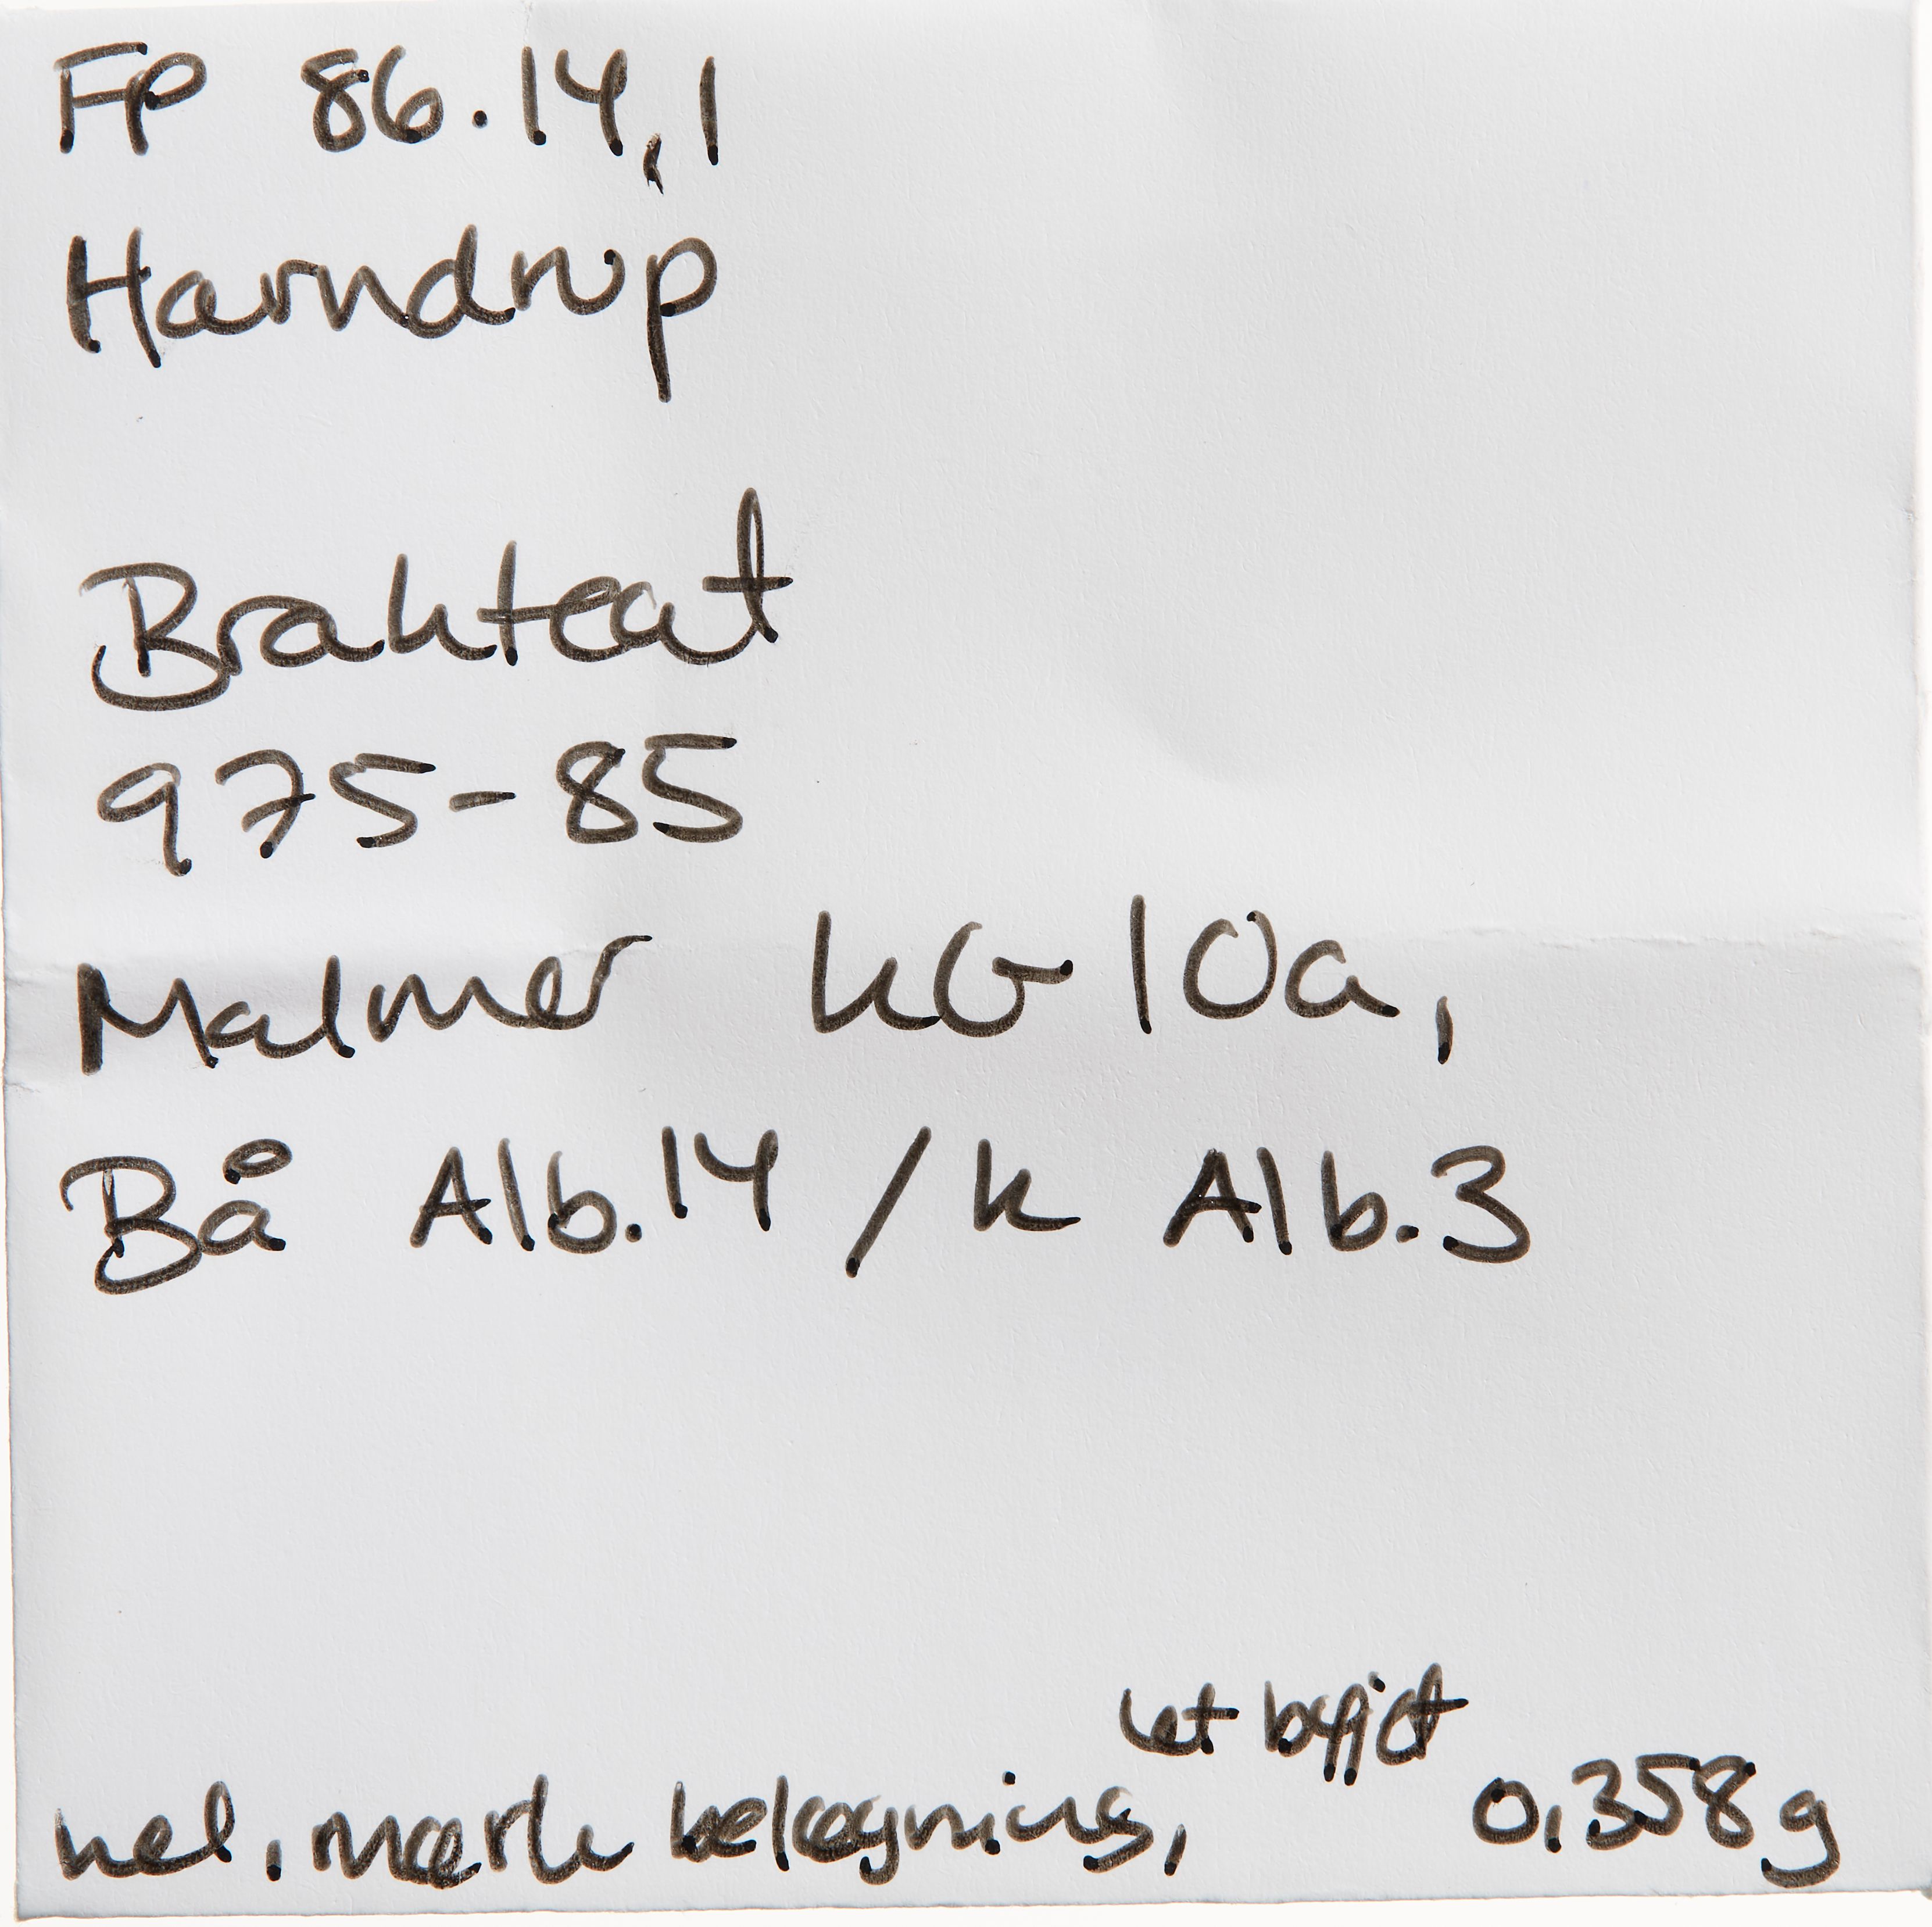 FP 86.14,1
Harndrup
Brakteat
975-85
Malmer KG 10a,
Bå Alb.14 / K Alb.3
let bøjet
hel, mørk belægning, 0,358g